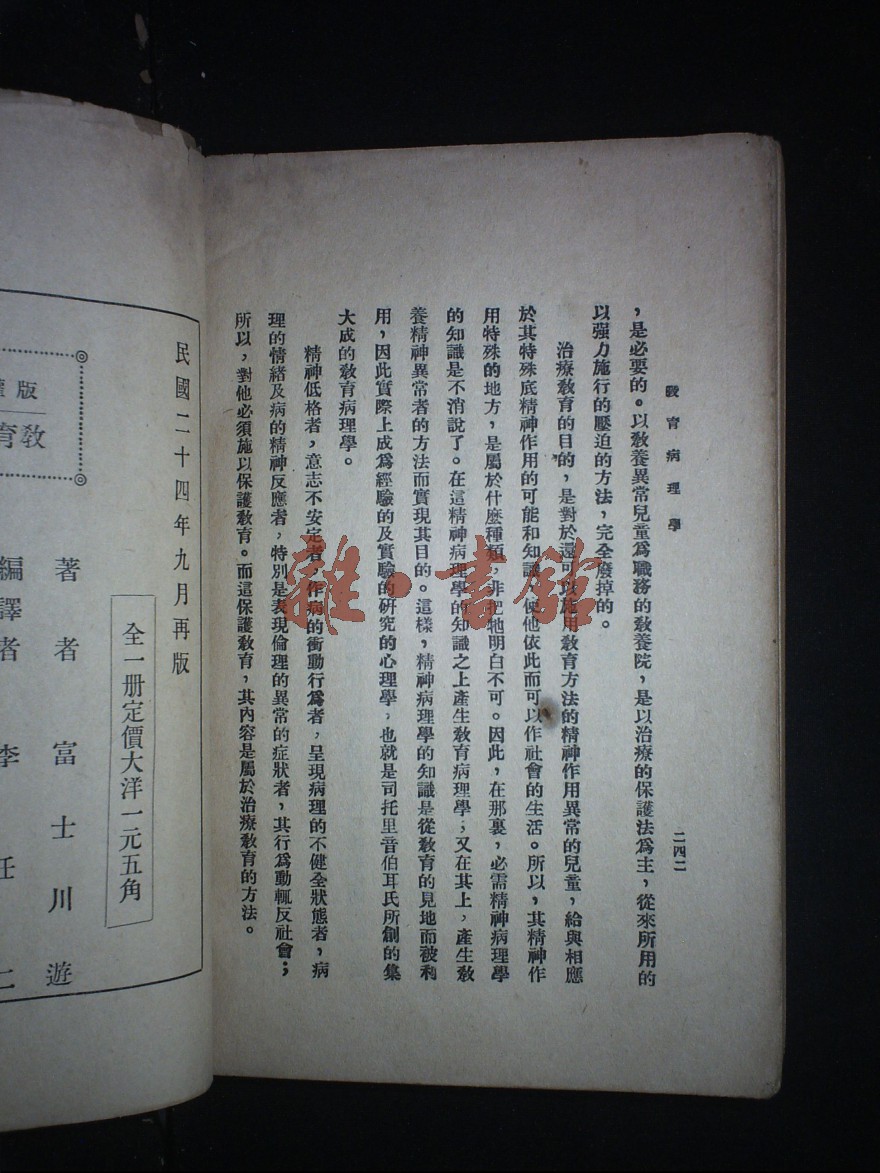 敎育病理學
二四二
，是必要的。以敎養異常兒童爲職務的敎養院，是以治療的保護法爲主，從來所用的
以强力施行的壓迫的方法，完全廢掉的。
治療敎育的目的，是對於還可以施用敎育方法的精神作用異常的兒童，給與相應
於其特殊底精神作用的可能和知識，使他依此而可以作社會的生活。所以，其精神作
用特殊的地方，是屬於什麽種類，非把牠明白不可。因此，在那裏，必需精神病理學
的知識是不消說了。在這精神病理學的知識之上產生敎育病理學；又在其上，產生敎
養精神異常者的方法而實現其目的。這樣，精神病理學的知識是從敎育的見地而被利
用，因此實際上成爲經驗的及實驗的硏究的心理學，也就是司托里音伯耳氏所創的集
大成的敎育病理學。
精神低格者，意志不安定者，作病的衝動行爲者，呈現病理的不健全狀態者，病
理的情緖及病的精神反應者，特別是表現倫理的異常的症狀者，其行爲動輒反社會；
所以，對他必須施以保護敎育。而這保護敎育，其內容是屬於治療敎育的方法。
雜·書館
民國二十四年九月再版
全一册定價大洋一元五角
著者富士川遊
編譯者李任二
版
敎育